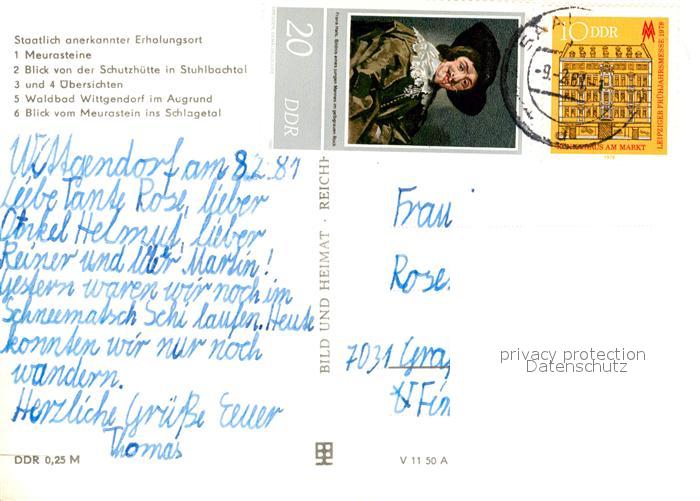 Staatlich anerkannter Erholungsort
1 Meurasteine
2 Blick von der Schutzhütte in Stuhlbachtal
3 und 4 Übersichten
5 Waldbad Wittgendorf im Augrund
6 Blick vom Meurastein ins Schlagetal
Wittgendorf am 8.2.81
Liebe Tante Rose, lieber
Onkel Helmut, lieber
Reiner und lieber Martin!
Gestern waren wir noch im
Schneematsch Schi laufen. Heute
konnten wir nur noch
wandern.
Herzliche Grüße Eeuer
Thomas
DDR 0,25 M
BILD UND HEIMAT · REICH
V 11 50 A
20
DDR
Frans Hals, Bildnis eines jungen Mannes im gelbgrauen Rock
10 DDR
LEIPZIGER FRÜHJAHRSMESSE 1978
AM MARKT
1978
Frau
Rose
7031
privacy protection
Datenschutz